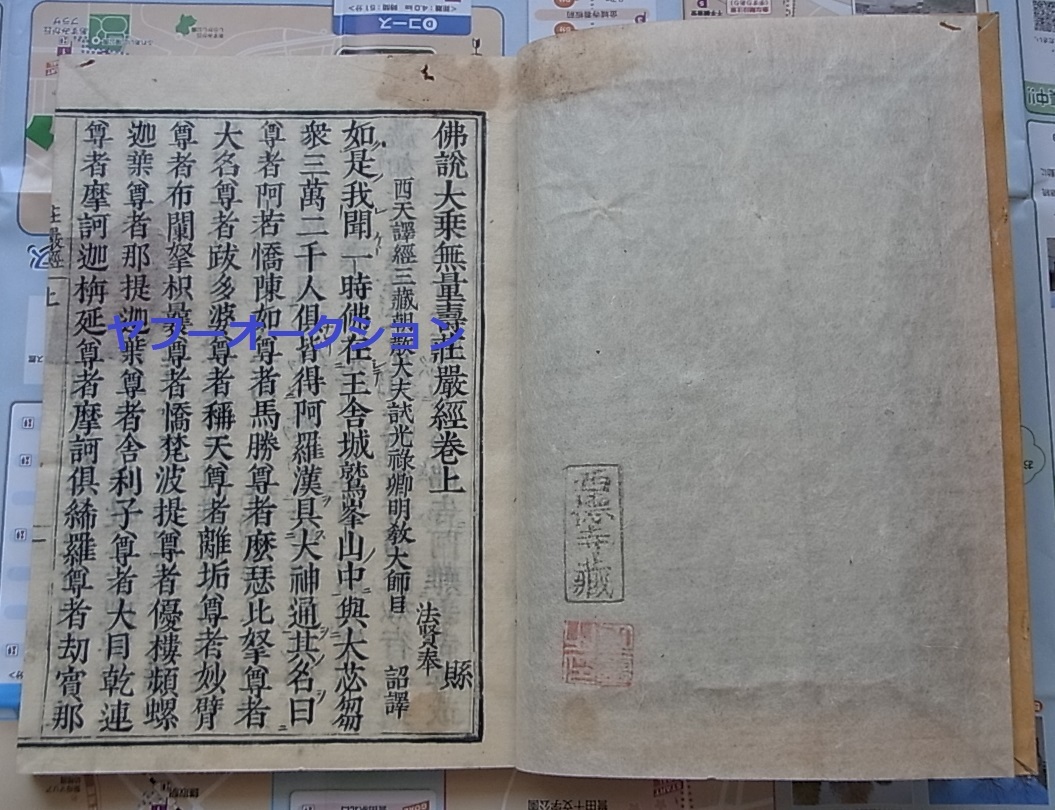 佛說大乘無量壽莊嚴經卷上
縣
西天譯經三藏朝散大夫試光祿卿明敎大師臣
法賢奉
詔譯
如是我聞一時佛在王舍城鷲峯山中與大苾芻
衆三萬二千人俱皆得阿羅漢具大神通其名曰
尊者阿若憍陳如尊者馬勝尊者麼瑟比拏尊者
大名尊者跋多婆尊者稱天尊者離垢尊者妙臂
尊者布闌拏枳曩尊者憍梵波提尊者優樓頻螺
迦葉尊者那提迦葉尊者舍利子尊者大目乾連
尊者摩訶迦旃延尊者摩訶俱絺羅尊者劫賓那
莊嚴經 上
西德寺藏
ヤフーオークション
Dコース